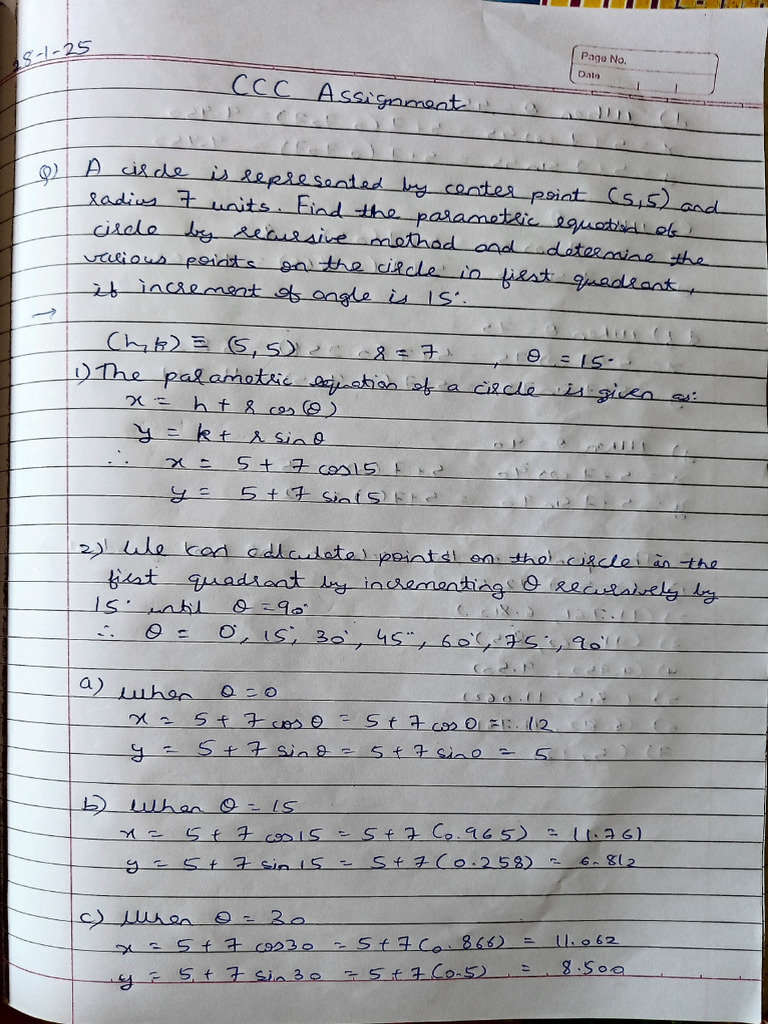 28-1-25
Page No.
Date
CCC Assignment
Q) A circle is represented by center point (5,5) and
radius 7 units. Find the parametric equation of
circle by recursive method and determine the
various points on the circle in first quadrant,
if increment of angle is 15°.
→
(h,k) ≡ (5,5) r = 7 , θ = 15°
1) The parametric equation of a circle is given as:
x = h + r cos(θ)
y = k + r sin θ
∴ x = 5 + 7 cos15
y = 5 + 7 sin15
2) We can calculate points on the circle in the
first quadrant by incrementing θ recursively by
15° until θ = 90°
∴ θ = 0°, 15°, 30°, 45°, 60°, 75°, 90°
a) When θ = 0
x = 5 + 7 cos θ = 5 + 7 cos 0 = 12
y = 5 + 7 sin θ = 5 + 7 sin 0 = 5
b) When θ = 15
x = 5 + 7 cos15 = 5 + 7 (0.965) = 11.761
y = 5 + 7 sin 15 = 5 + 7 (0.258) = 6.812
c) When θ = 30
x = 5 + 7 cos30 = 5 + 7 (0.866) = 11.062
y = 5 + 7 sin 30 = 5 + 7 (0.5) = 8.500